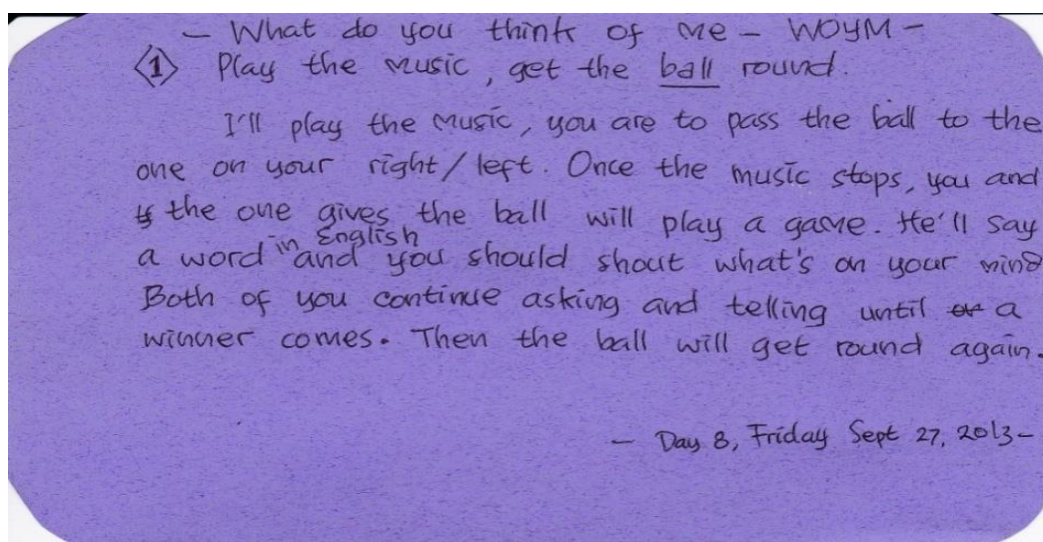 - What do you think of me - WOYM -
1 Play the music, get the ball round.
I'll play the music, you are to pass the ball to the
one on your right/left. Once the music stops, you and
the one gives the ball will play a game. He'll say
in English
a word and you should shout what's on your mind
Both of you continue asking and telling until a
winner comes. Then the ball will get round again.
- Day 8, Friday Sept 27, 2013 -